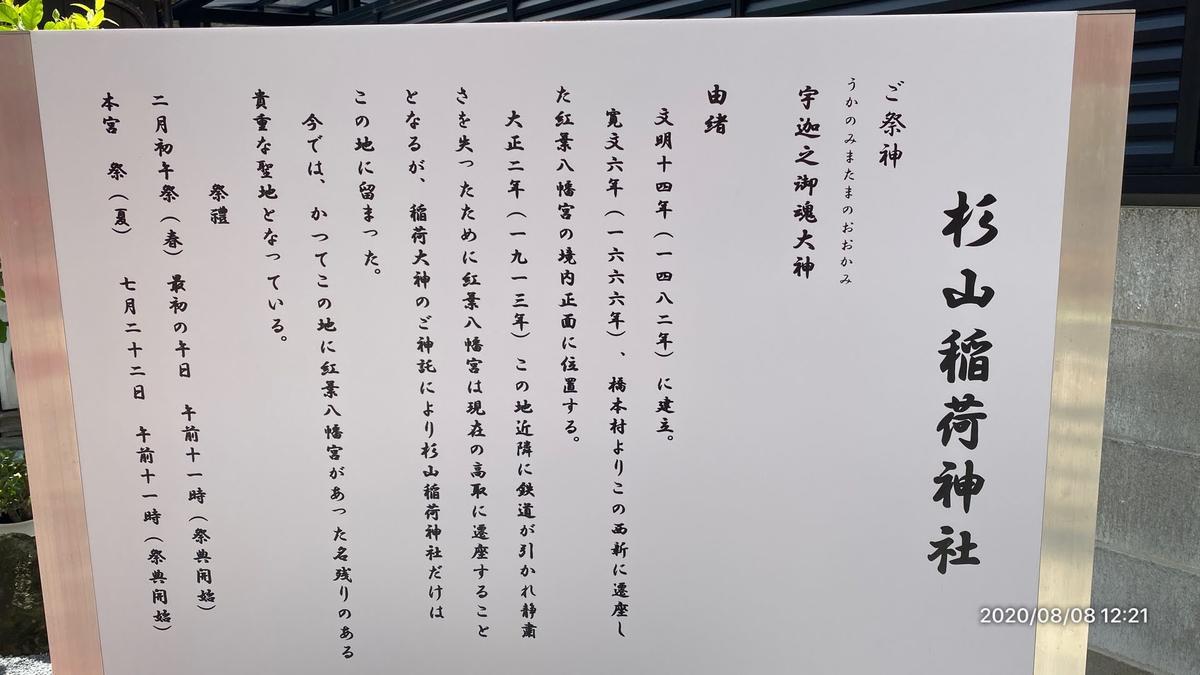 杉山稲荷神社
ご祭神
うかのみまたまのおおかみ
宇迦之御魂大神
由緒
文明十四年(一四八二年)に建立。
寛文六年(一六六六年)、橋本村よりこの西新に遷座し
た紅葉八幡宮の境内正面に位置する。
大正二年(一九一三年)この地近隣に鉄道が引かれ静粛
さを失ったために紅葉八幡宮は現在の高取に遷座すること
となるが、稲荷大神のご神託により杉山稲荷神社だけは
この地に留まった。
今では、かつてこの地に紅葉八幡宮があった名残りのある
貴重な聖地となっている。
祭禮
二月初午祭(春) 最初の午日 午前十一時(祭典開始)
本宮 祭(夏) 七月二十二日 午前十一時(祭典開始)
2020/08/08 12:21